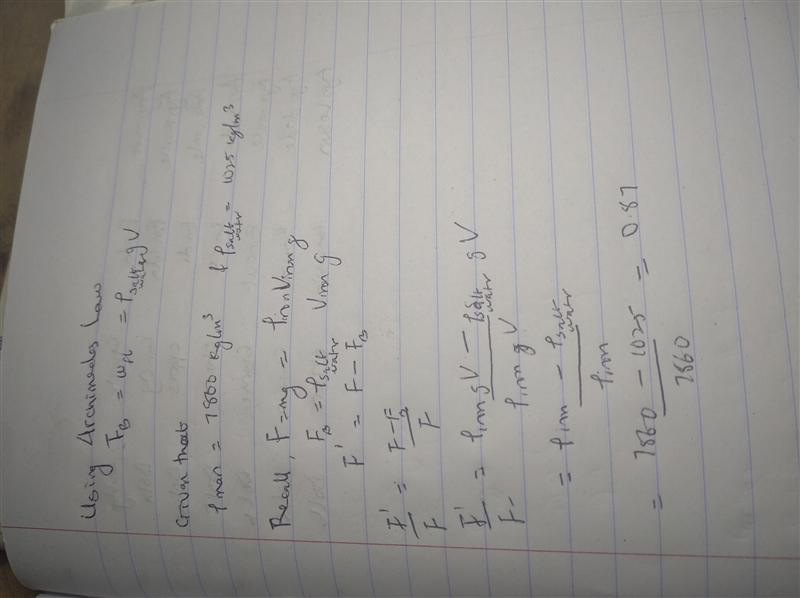 Using Archimedes Law
F_B = w_fl = ρ_salt water g V
Given that
ρ = 7860 kg/m³ & ρ_salt water = 1025 kg/m³
Recall, F = mg = ρ_iron V_iron g
F_B = ρ_salt water V_iron g
F' = F - F_B
F'/F = (F - F_B)/F
F'/F = (ρ_iron g V - ρ_salt water g V)/(ρ_iron g V)
= (ρ_iron - ρ_salt water)/ρ_iron
= (7860 - 1025)/7860 = 0.87